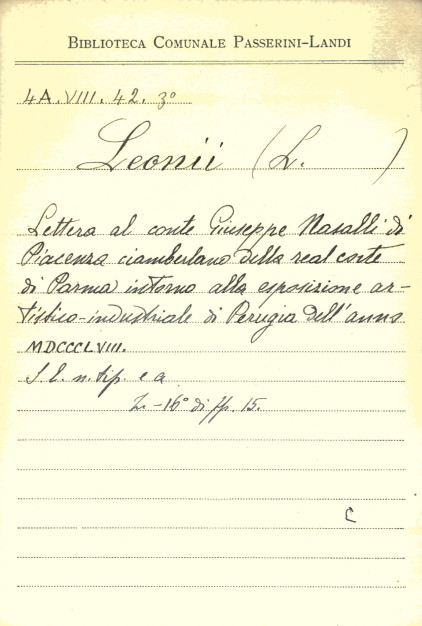 BIBLIOTECA COMUNALE PASSERINI-LANDI
4A. VIII. 42. 3º
Leonii (L. )
Lettera al conte Giuseppe Nasalli di
Piacenza ciamberlano della real corte
di Parma intorno alla esposizione ar-
tistico-industriale di Perugia dell'anno
MDCCCLVIII.
S. l. n. tip. e a
in-16º di pp. 15.
C